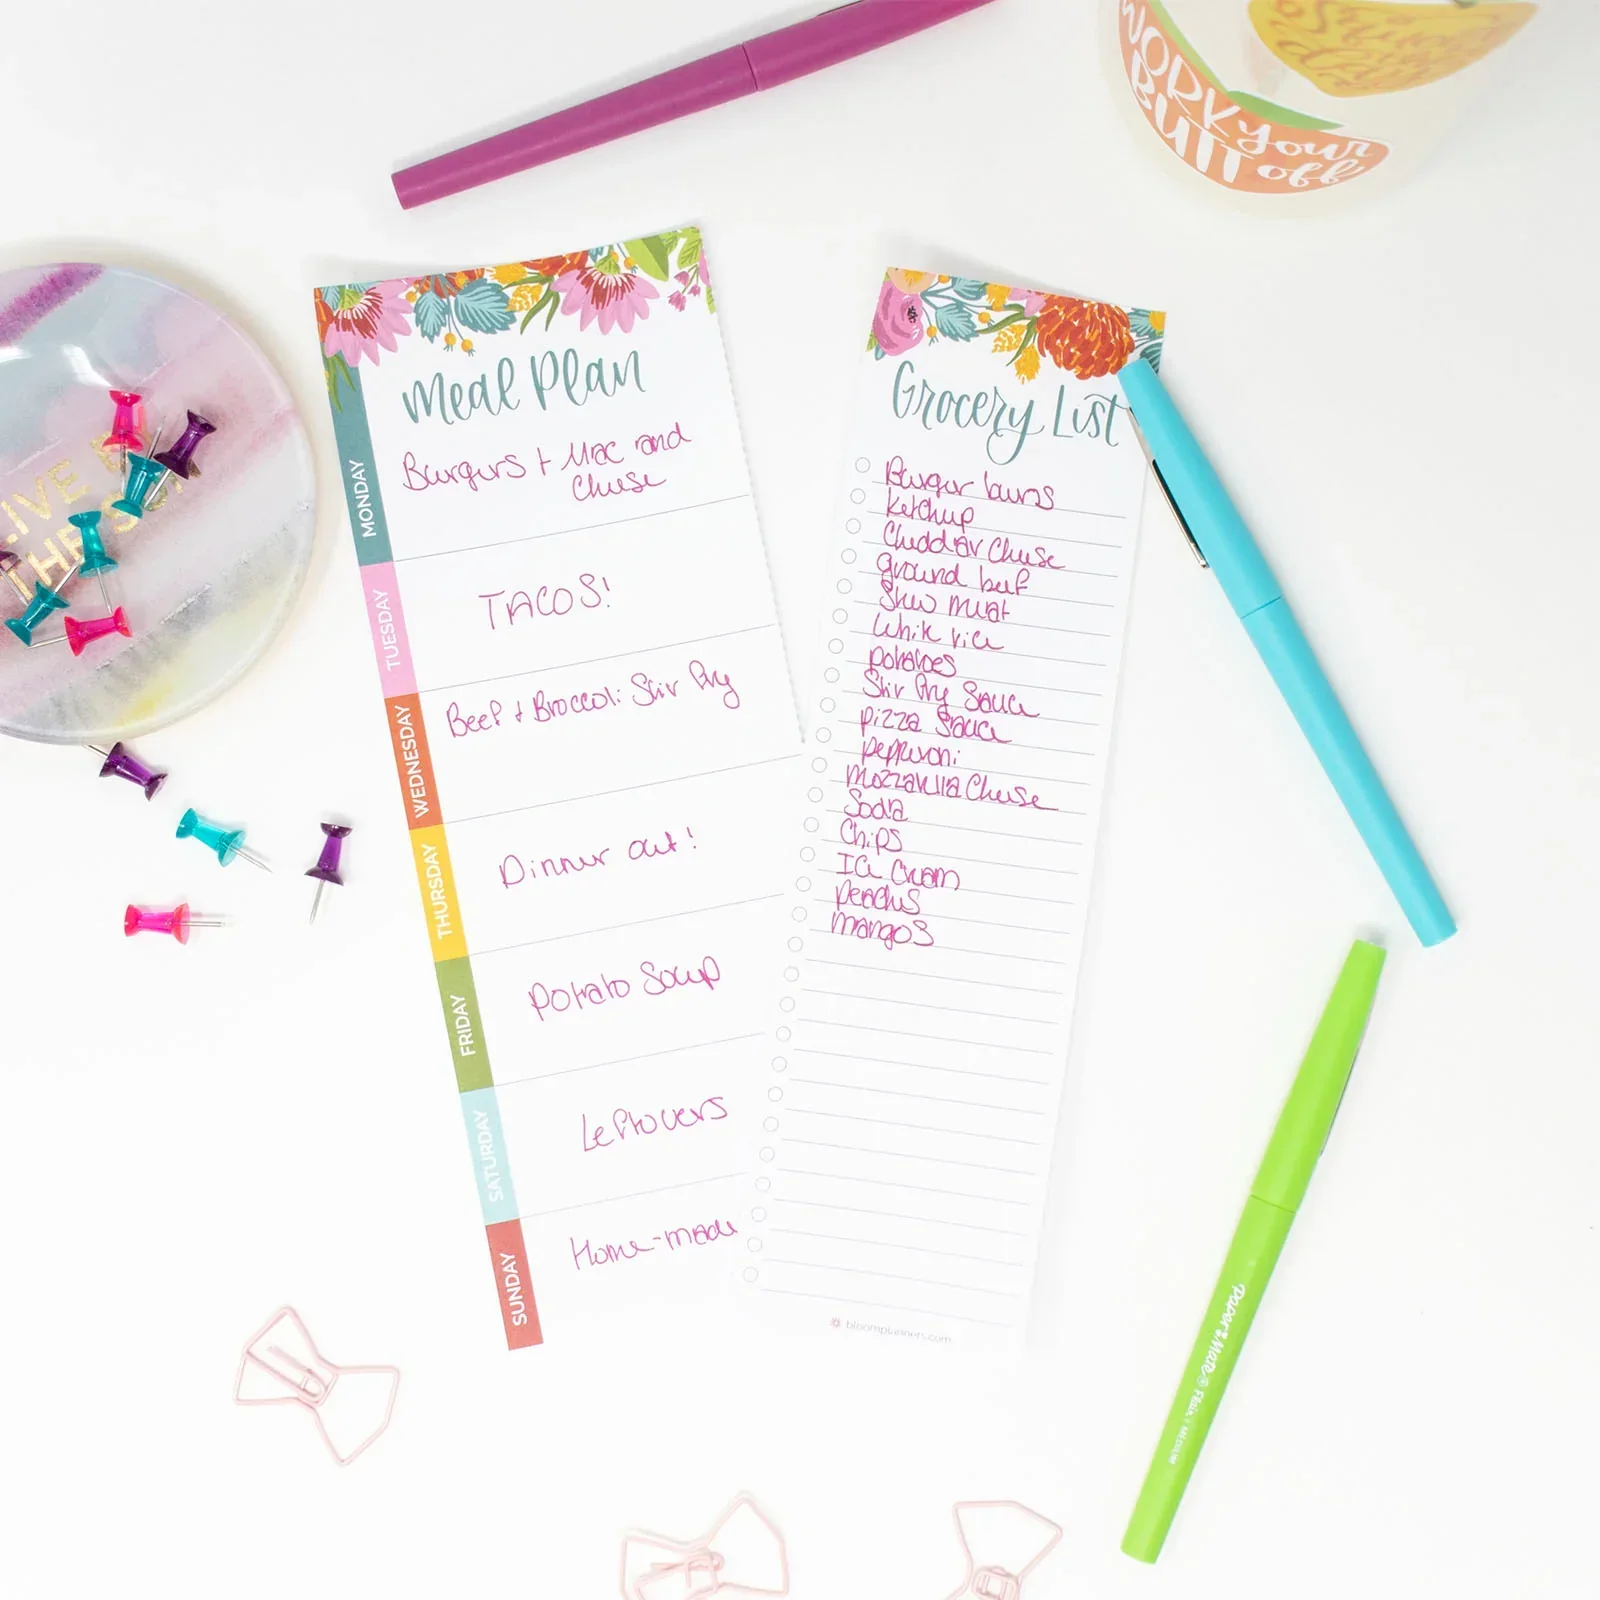 WORK Your
BUTT off
Meal Plan
MONDAY
Burgers + Mac and
Cheese
TUESDAY
TACOS!
WEDNESDAY
Beef + Broccoli Stir Fry
THURSDAY
Dinner out!
FRIDAY
Potato Soup
SATURDAY
Leftovers
SUNDAY
Home-made
Grocery List
Burger buns
Ketchup
Cheddar Cheese
ground beef
Stew meat
White rice
potatoes
Stir Fry Sauce
pizza sauce
pepperoni
Mozzarella Cheese
Soda
Chips
Ice Cream
Peaches
mangos
bloomplanners.com
Paper Mate Flair MEDIUM